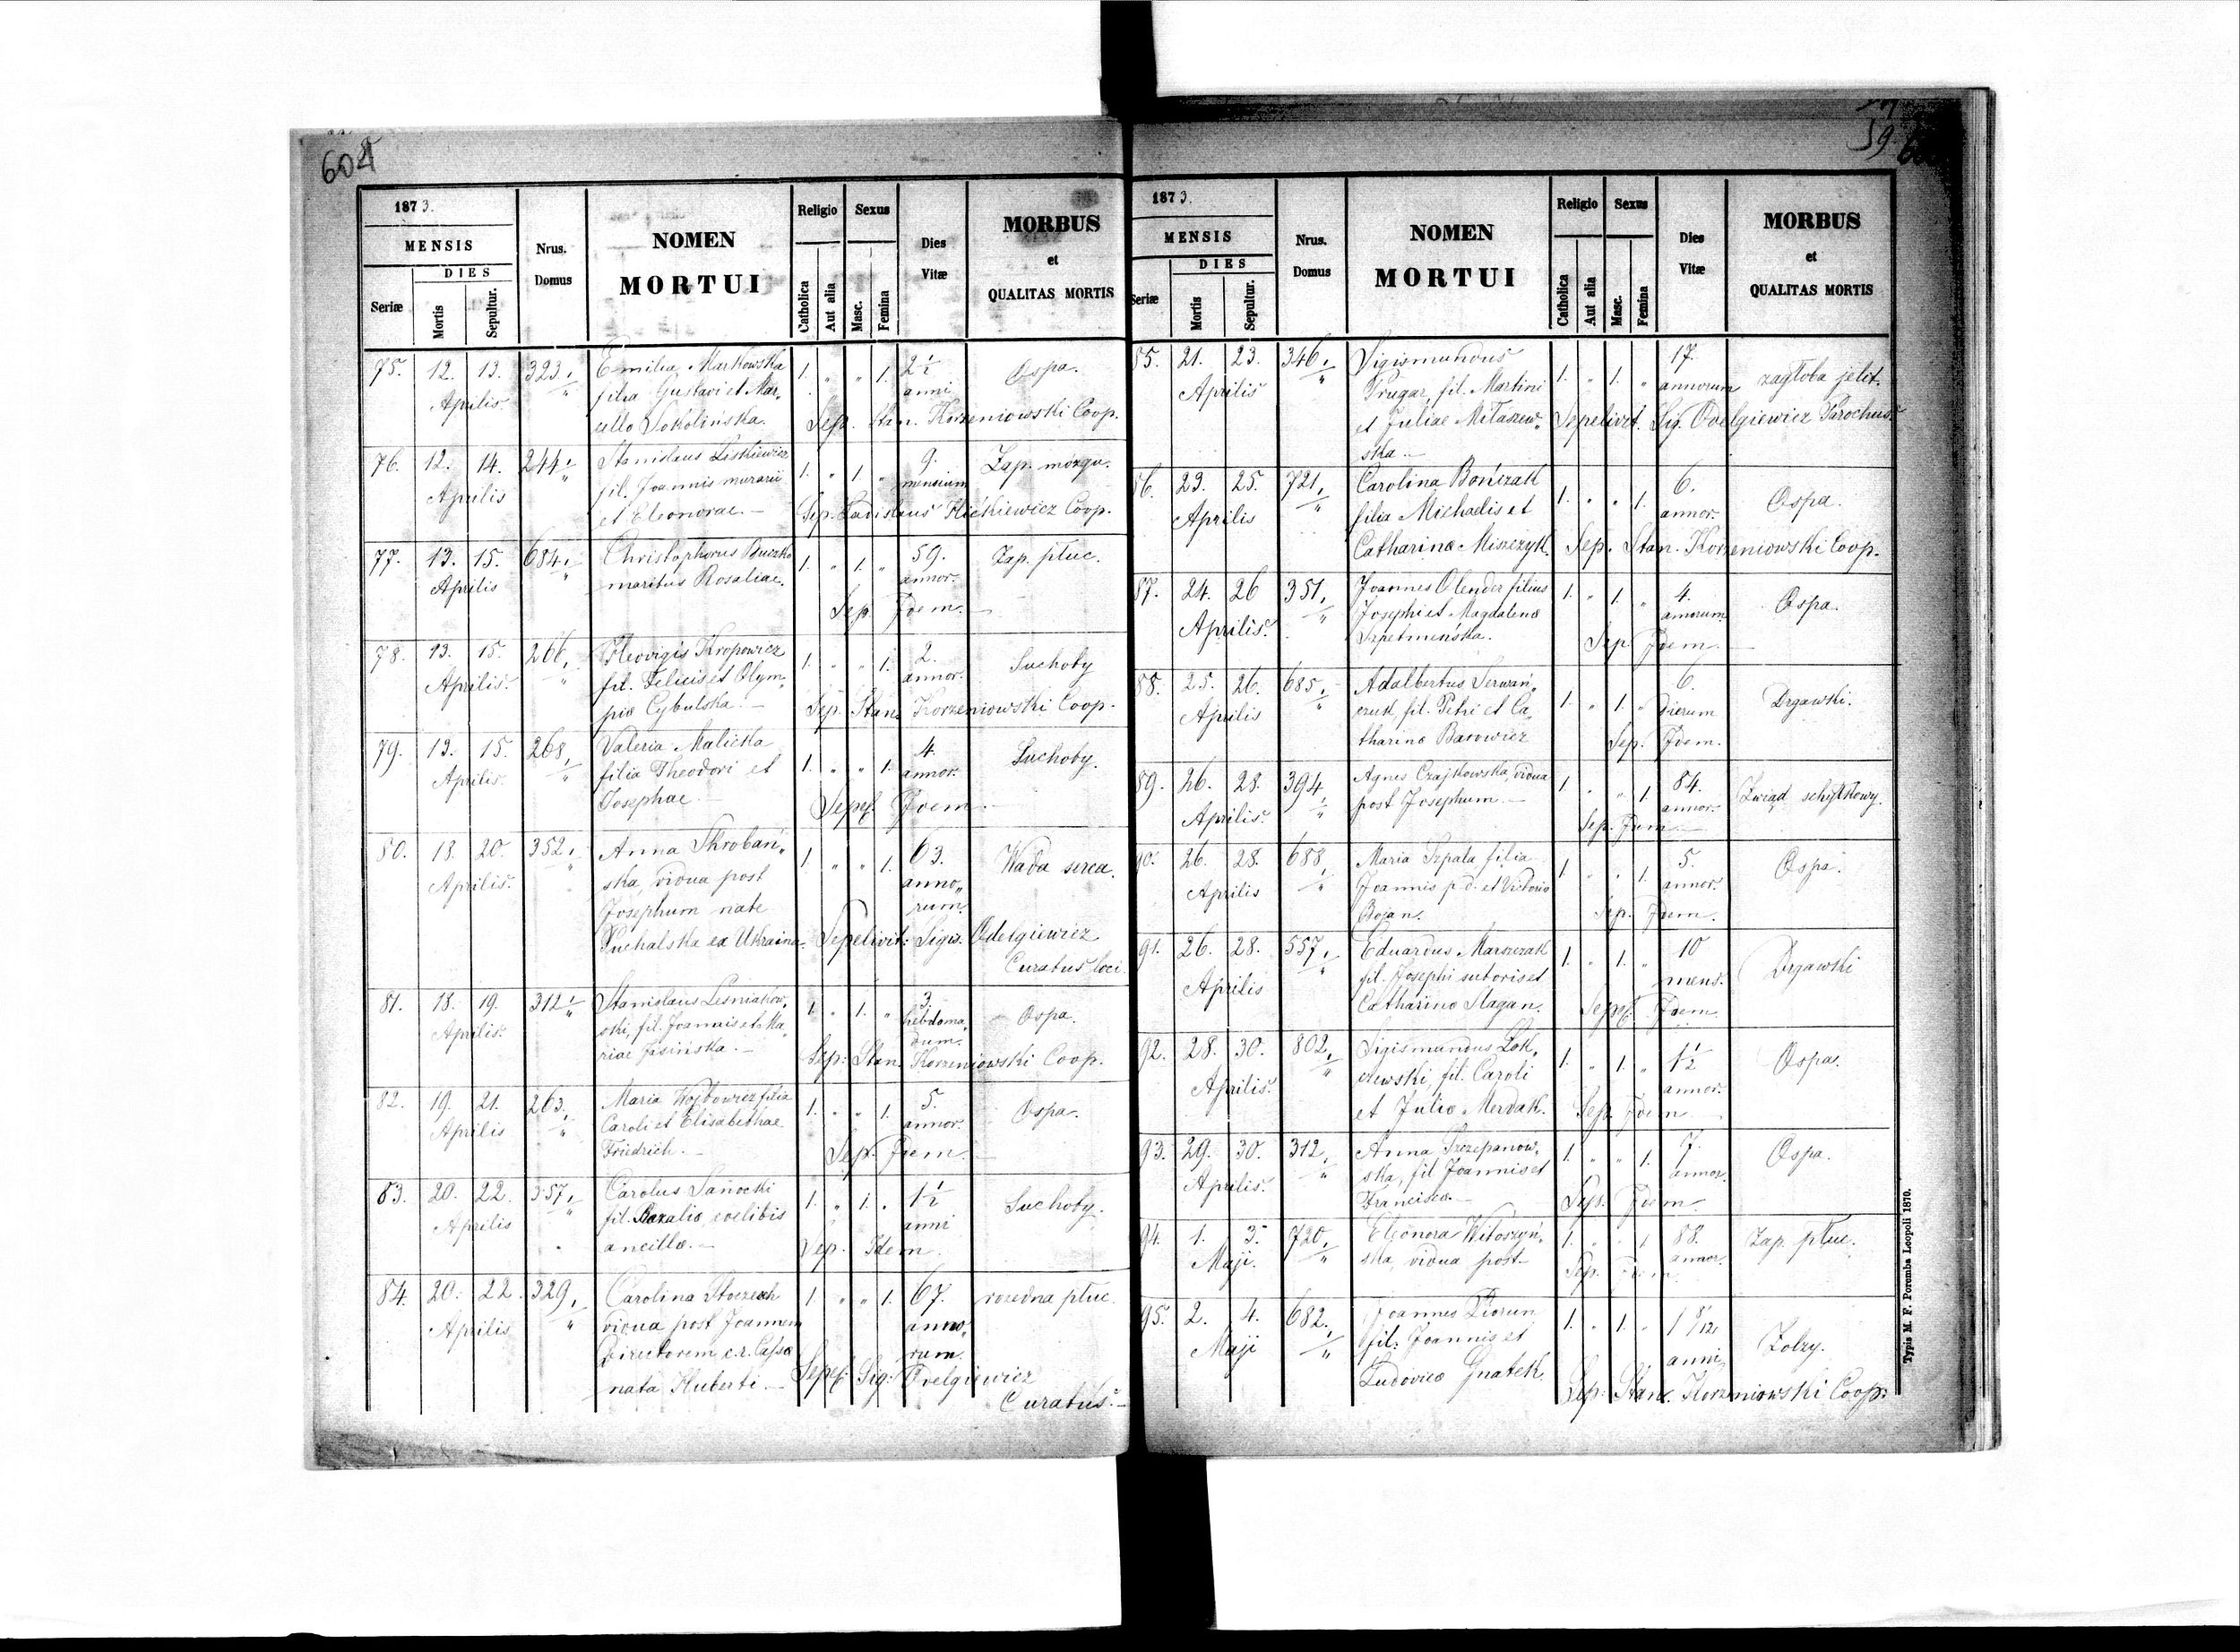 604
1873.
MENSIS
DIES
Seriæ
Mortis
Sepultur.
Nrus.
Domus
NOMEN
MORTUI
Religio
Sexus
Catholica
Aut alia
Masc.
Femina
Dies
Vitæ
MORBUS
et
QUALITAS MORTIS
75. 12. 13. 323. Emilia Markowska 1. " " 1. 2½ Ospa.
Aprilis filia Gustavi et Mar„ anni
cello Sokolińska. Sep. Stan. Korzeniowski Coop.
76. 12. 14. 244. Stanislaus Liskiewicz 1. " 1. " 9. Zap. mózgu.
Aprilis fil. Joannis murarii mensium
et Eleonorae. — Sep. Ladislaus Hickiewicz Coop.
77. 13. 15. 684. Christophorus Buczko 1. " 1. " 59. Zap. płuc.
Aprilis maritus Rosaliae. annor.
Sep. Idem. —
78. 13. 15. 266. Hedvigis Kropowicz 1. " " 1. 2. Suchoby
Aprilis. fil. Felicis et Olym„ annor.
pia Cybulska. — Sep. Stan. Korzeniowski Coop.
79. 13. 15. 268. Valeria Malicka 1. " " 1. 4. Suchoby.
Aprilis. filia Theodori et annor.
Josephae. — Sepel. Idem —
80. 18. 20. 352. Anna Skrobań„ 1. " " 1. 63. Wada serca.
Aprilis. ska, vidua post anno„
Josephum nate rum.
Puchalska ex Ukraina. Sepelivit: Sigis. Odelgiewicz
Curatus loci.
81. 18. 19. 312 Stanislaus Leśniakow„ 1. " 1. " 3. Ospa.
Aprilis. ski, fil. Joannis et Ma„ hebdoma„
riae Jasińska. — dum.
Sep: Stan. Korzeniowski Coop.
82. 19. 21. 263. Maria Wojtowicz filia 1. " " 1. 5. Ospa.
Aprilis Caroli et Elisabethae annor.
Friedrich. — Sep. Idem. —
83. 20. 22. 357. Carolus Sanocki 1. " 1. " 1½ Suchoby.
Aprilis fil. Rozalia coelibis anni
ancilla. — Sep. Idem.
84. 20. 22. 329. Carolina 1. " " 1. 67. rozedna płuc.
Aprilis vidua post Joannem anno„
Directorem c.r. Cassa rum.
nata Huberti. — Sepel: Sig: Odelgiewicz
Curatus. —
59.
1873.
MENSIS
DIES
Seriæ
Mortis
Sepultur.
Nrus.
Domus
NOMEN
MORTUI
Religio
Sexus
Catholica
Aut alia
Masc.
Femina
Dies
Vitæ
MORBUS
et
QUALITAS MORTIS
85. 21. 23. 346. Sigismundus 17.
Aprilis Prugar, fil. Martini 1. " 1. " annorum zagłoba jelit.
et Juliae Miłaszew„ Sepelivit. Sig. Odelgiewicz Parochus.
ska. —
86. 23. 25. 721. Carolina Bończak 1. " " 1. 6. Ospa.
Aprilis filia Michaelis et annor.
Catharina Misczyk. Sep. Stan. Korzeniowski Coop.
87. 24. 26 351. Joannes Olender filius 1. " 1. " 4. Ospa.
Aprilis. Josephi et Magdalena annorum
Szpetmeńska. Sep. Idem. —
88. 25. 26. 685. Adalbertus Serwań„ 1. " 1. " 6. Drgawki.
Aprilis czuk, fil. Petri et Ca„ dierum
tharina Barowicz Sep. Idem.
89. 26. 28. 394. Agnes Czajkowska, vidua 1. " " 1. 84. Zwiąd schyłkowy.
Aprilis. post Josephum. — annor.
Sep. Idem —
90. 26. 28. 688. Maria Szpala filia 1. " " 1. 5. Ospa.
Aprilis Joannis p.d. et Victoria annor.
Bojan. Sep. Idem.
91. 26. 28. 557. Eduardus Marszczak 1. " 1. " 10 Drgawki
Aprilis fil. Josephi sutoris et mens.
Catharina Stagan. Sepel. Idem
92. 28. 30. 802. Sigismundus Lok„ 1. " 1. " 1½ Ospa.
Aprilis. czewski, fil. Caroli annor.
et Julia Merdak. Sep. Idem —
93. 29. 30. 312. Anna Szczepanow„ 1. " " 1. 7. Ospa.
Aprilis. ska, fil Joannis et annor.
Francisca. — Sep. Idem. —
94. 1. 3. 720. Eleonora Witoszyń„ 1. " " 1 88. Zap. płuc.
Maji. ska, vidua post — annor.
Sep. Idem
95. 2. 4. 682. Joannes Piorun 1. " 1. " 1 8/12 Zołzy.
Maji fil: Joannis et anni
Ludovica Gnatek. Sep: Stan. Korzeniowski Coop:
Typis M. F. Poremba Leopoli 1870.